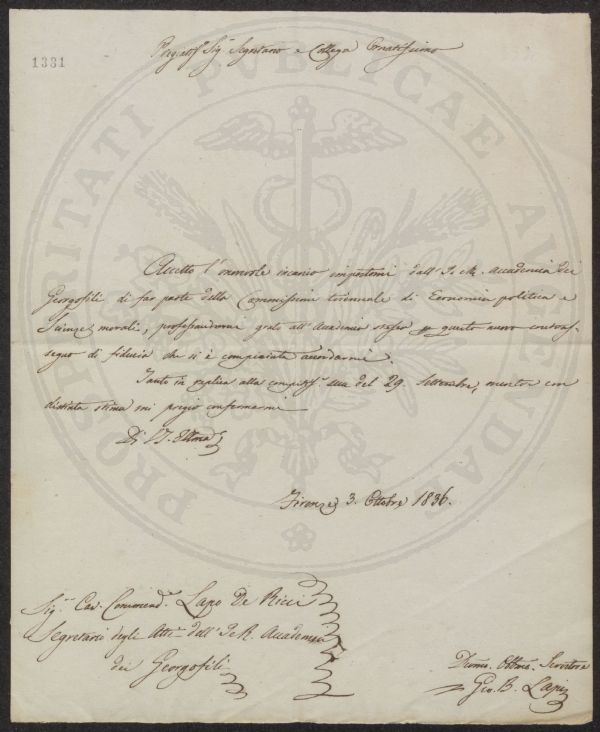 1331
Pregiat.º Sig.º Segretario e Collega Ornatissimo
Accetto l'onorevole incarico impostomi dall'I. e R. Accademia dei
Georgofili di far parte della Commissione toriennale di Economia politica e
Scienze morali, professandomi grato all'Accademia stessa per questo nuovo contras-
segno di fiducia che si è compiaciuta accordarmi.
Tanto in replica alla compitiss.ª sua del 29. Settembre, mentre con
distinta stima mi pregio confermarmi
Di V.S. Illma
Firenze 3. Ottobre 1836.
Sig.r Cav. Commend.r Lapo De Ricci
Segretario degli Atti dell'I. e R. Accademia
dei Georgofili
Devmo. Obbmo. Servitore
Gio. B. Lapi
PROSPERITATI PUBLICAE AUGENDAE